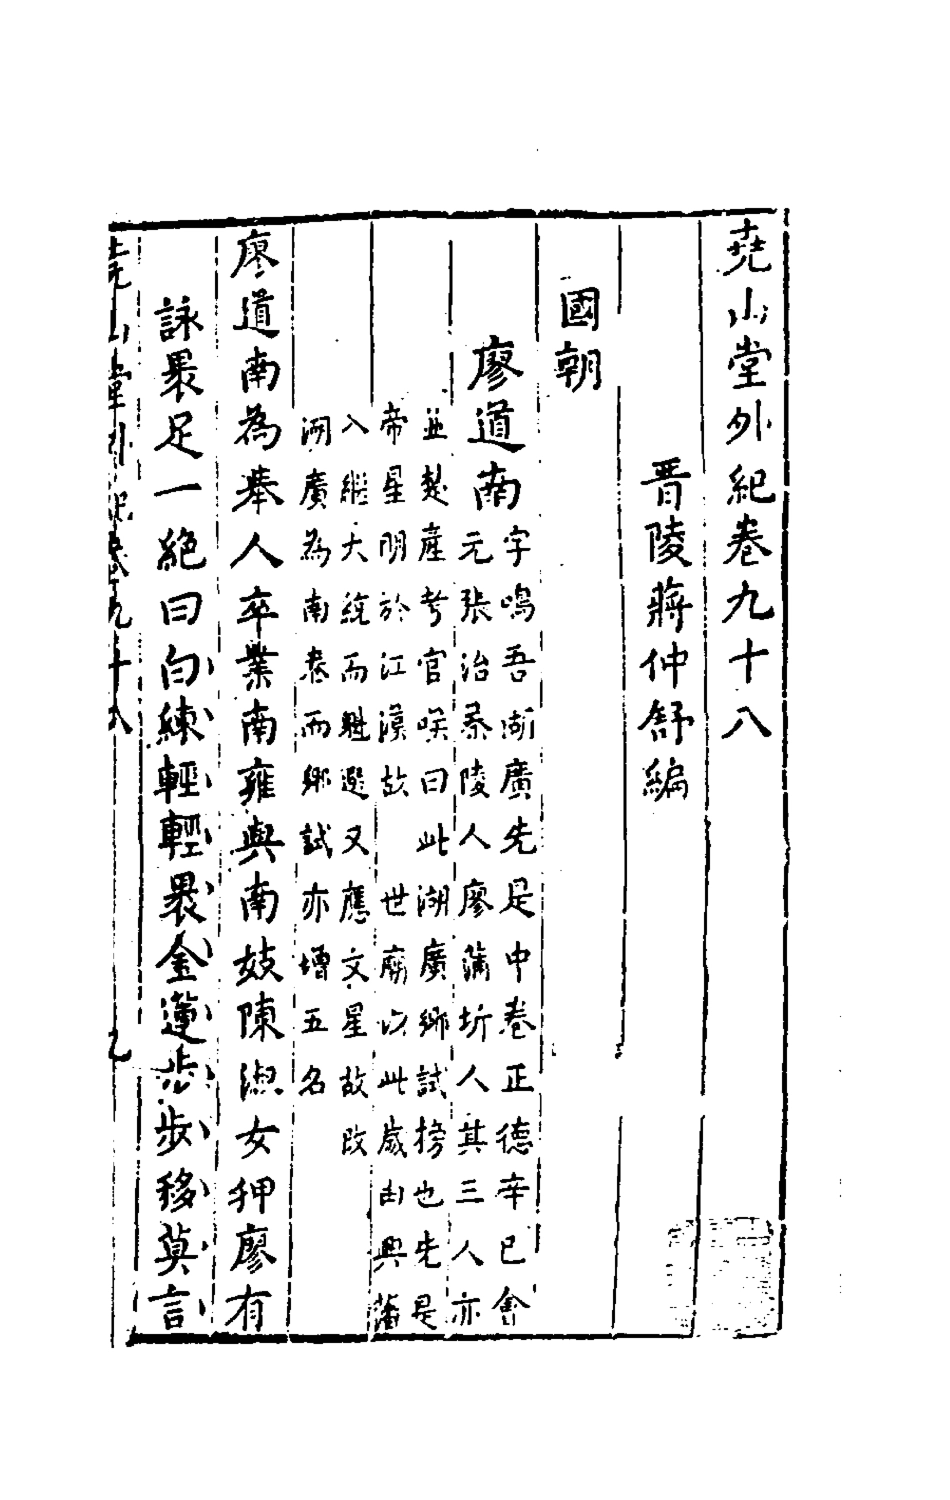 堯山堂外紀卷九十八
晉陵蔣仲舒編
國朝
廖道南
字鳴吾湖廣先是中卷正德辛巳會
元張治茶陵人廖蒲圻人其三人亦
並楚產考官嘆曰此湖廣鄉試榜也先是
帝星明於江漢故 世廟以此歲由興藩
入繼大統而魁選又應文星故改
湖廣為南卷而鄉試亦增五名
廖道南為舉人卒業南雍與南妓陳淑女狎廖有
詠裹足一絕曰白練輕輕裹金蓮步步移莫言
堯山堂外紀卷九十八